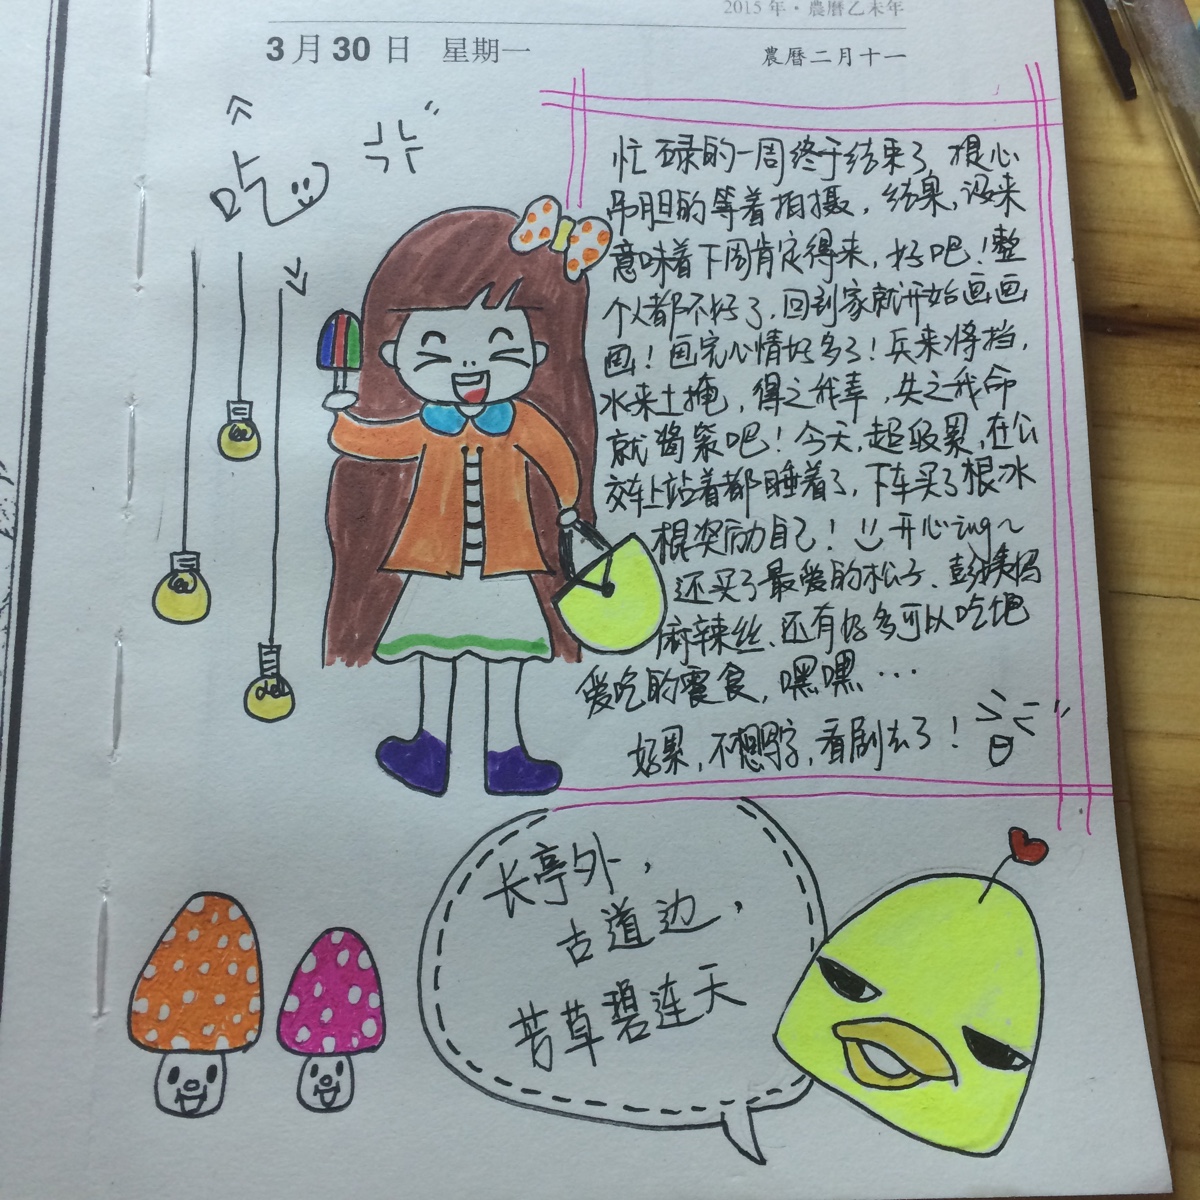 2015年·農曆乙未年
3月30日 星期一
農曆二月十一
吃
忙碌的一周终于结束了,提心
吊胆的等着拍摄,结果,没来
意味着下周肯定得来,好吧!整
个人都不好了,回到家就开始画画
画!画完心情好多了!兵来将挡,
水来土掩,得之我幸,失之我命
就酱紫吧!今天,超级累,在公
交车上站着都睡着了,下车买了根冰
棍奖励自己!开心ing~
还买了最爱的松子、彭姨妈
麻辣丝、还有好多可以吃吧
爱吃的零食,嘿嘿…
好累,不想写字,看剧去了!
长亭外,
古道边,
芳草碧连天